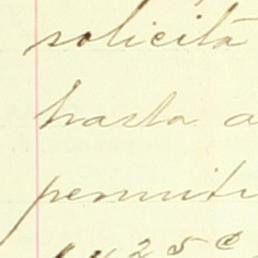 solicita
hasta a
permiti
25 c